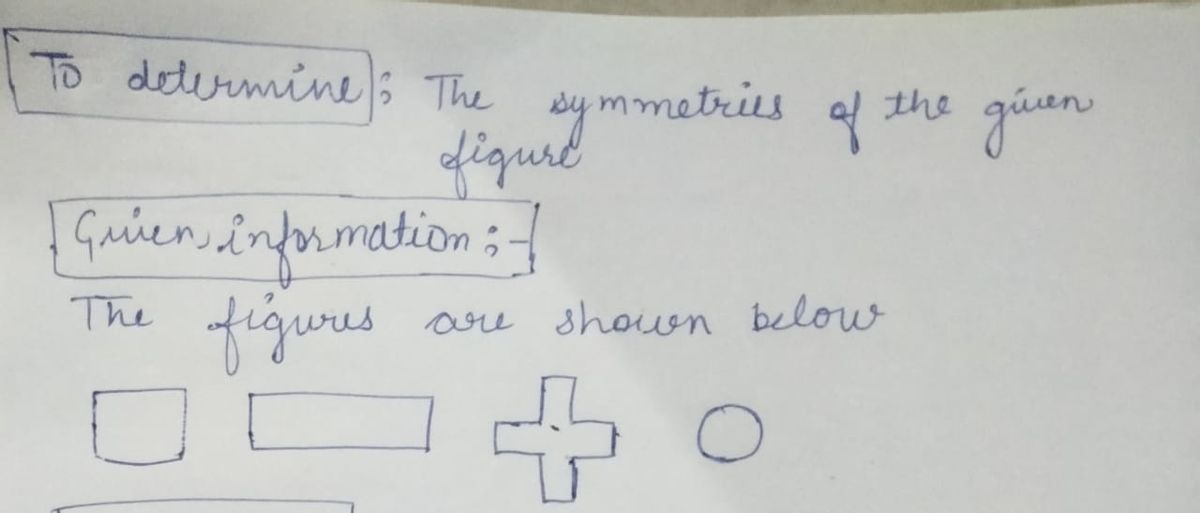 To determine : The symmetries of the given
figure
Given information :-
The figures are shown below